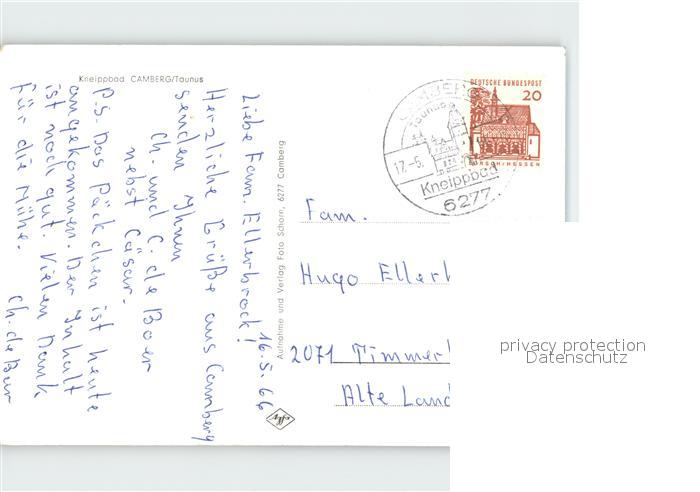 Kneippbad CAMBERG/Taunus
16.5.66
Liebe Fam. Ellerbrock!
Herzliche Grüße aus Camberg
senden Ihnen
Ch. und C. de Boer
nebst Cäsar.
P.S. Das Päckchen ist heute
angekommen. Der Inhalt
ist noch gut. Vielen Dank
für die Mühe.
Ch. de Boer
Aufnahme und Verlag Foto Schorn, 6277 Camberg
CAMBERG
Taunus
17.-5.
Kneippbad
6277
DEUTSCHE BUNDESPOST
20
LORSCH/HESSEN
Fam.
Hugo Ellerb
2071 Timmerh
Alte Land
privacy protection
Datenschutz